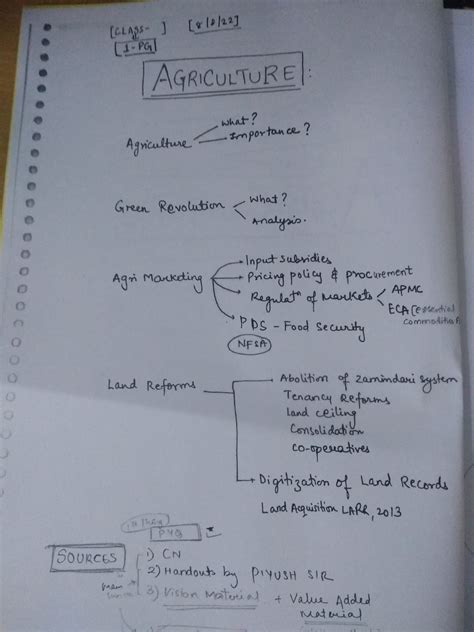 [CLASS- ] [8/8/22]
1-PG]
AGRICULTURE:
Agriculture What?
Importance?
Green Revolution What?
Analysis.
Agri Marketing Input Subsidies
Pricing policy & procurement
Regulatn of Markets APMC
ECA (essential
commodities A
PDS - Food Security
NFSA
Land Reforms Abolition of Zamindari System
Tenancy Reforms
land ceiling
Consolidation
co-operatives
Digitization of Land Records
Land Acquisition LARR, 2013
PYQ
SOURCES 1) CN
2) Handouts by PIYUSH SIR
main 3) Vision Material + Value Added
Material